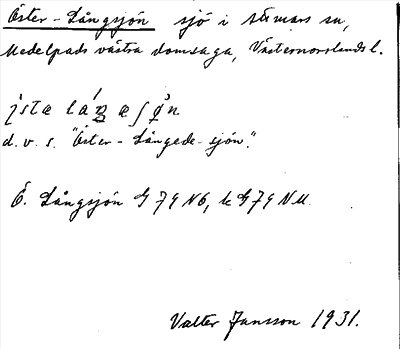 Öster-Långsjön sjö i Stöde sn,
Medelpads västra domsaga, Västernorrlands l.
d.v.s. "Öster-Långede-sjön".
Ö. Långsjön G 79 N6, k G 79 NU.
Valter Jansson 1931.